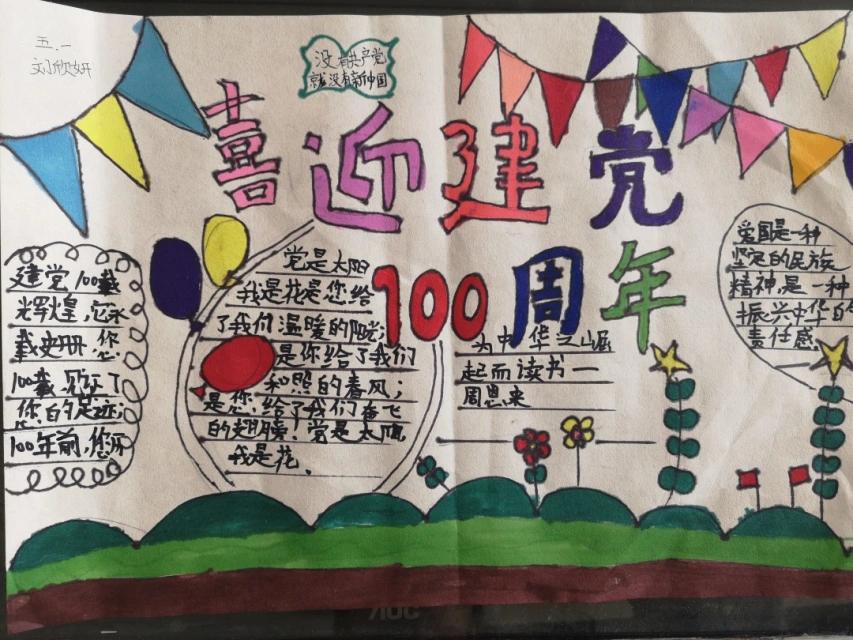 五.一
刘欣妍
没有共产党
就没有新中国
喜迎建党
100周年
建党100载
辉煌,
载史册.您
100载
您的足迹;
100年前,您
党是太阳
我是花是您给
了我们温暖的阳光;
是你给了我们
和煦的春风;
是您,给了我们奋飞
的翅膀.党是太阳,
我是花.
为中华之崛
起而读书一
周恩来
爱国是一种
坚定的民族
精神,是一种
振兴中华的
责任感
AOC